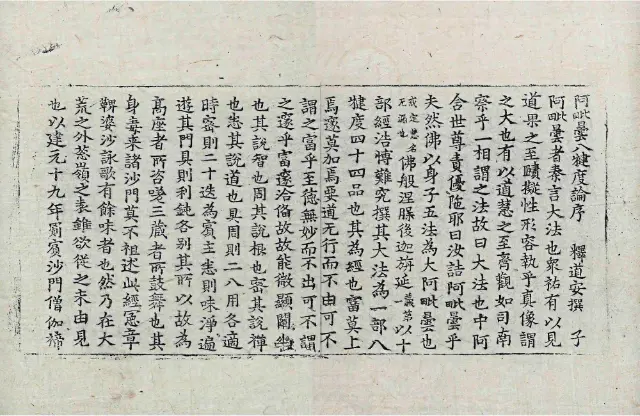 阿毗曇八犍度論序　釋道安撰　子
阿毗曇者秦言大法也衆祐有以見
道果之至賾擬性形容執乎真像謂
之大也有以道慧之至齊觀如司南
察乎一相謂之法故曰大法也中阿
含世尊責優陁耶曰汝詰阿毗曇乎
夫然佛以身子五法為大阿毗曇也
戒定慧名无漏也佛般涅槃後迦旃延義第一以十
部經浩博難究撰其大法為一部八
犍度四十四品也其為經也富莫上
焉邃莫加焉要道无行而不由可不
謂之富乎至德無妙而不出可不謂
之邃乎富邃洽俻故故能微顯闡幽
也其說智也周其說根也密其說禪
也悉其說道也具周則二八用各適
時密則二十迭為賓主悉則味淨遍
遊其門具則利鈍各別其所以故為
高座者所咨嗟三藏者所鼓舞也其
身毒来諸沙門莫不祖述此經憲章
鞞婆沙詠歌有餘味者也然乃在大
荒之外葱嶺之表雖欲從之末由見
也以建元十九年罽賓沙門僧伽禘